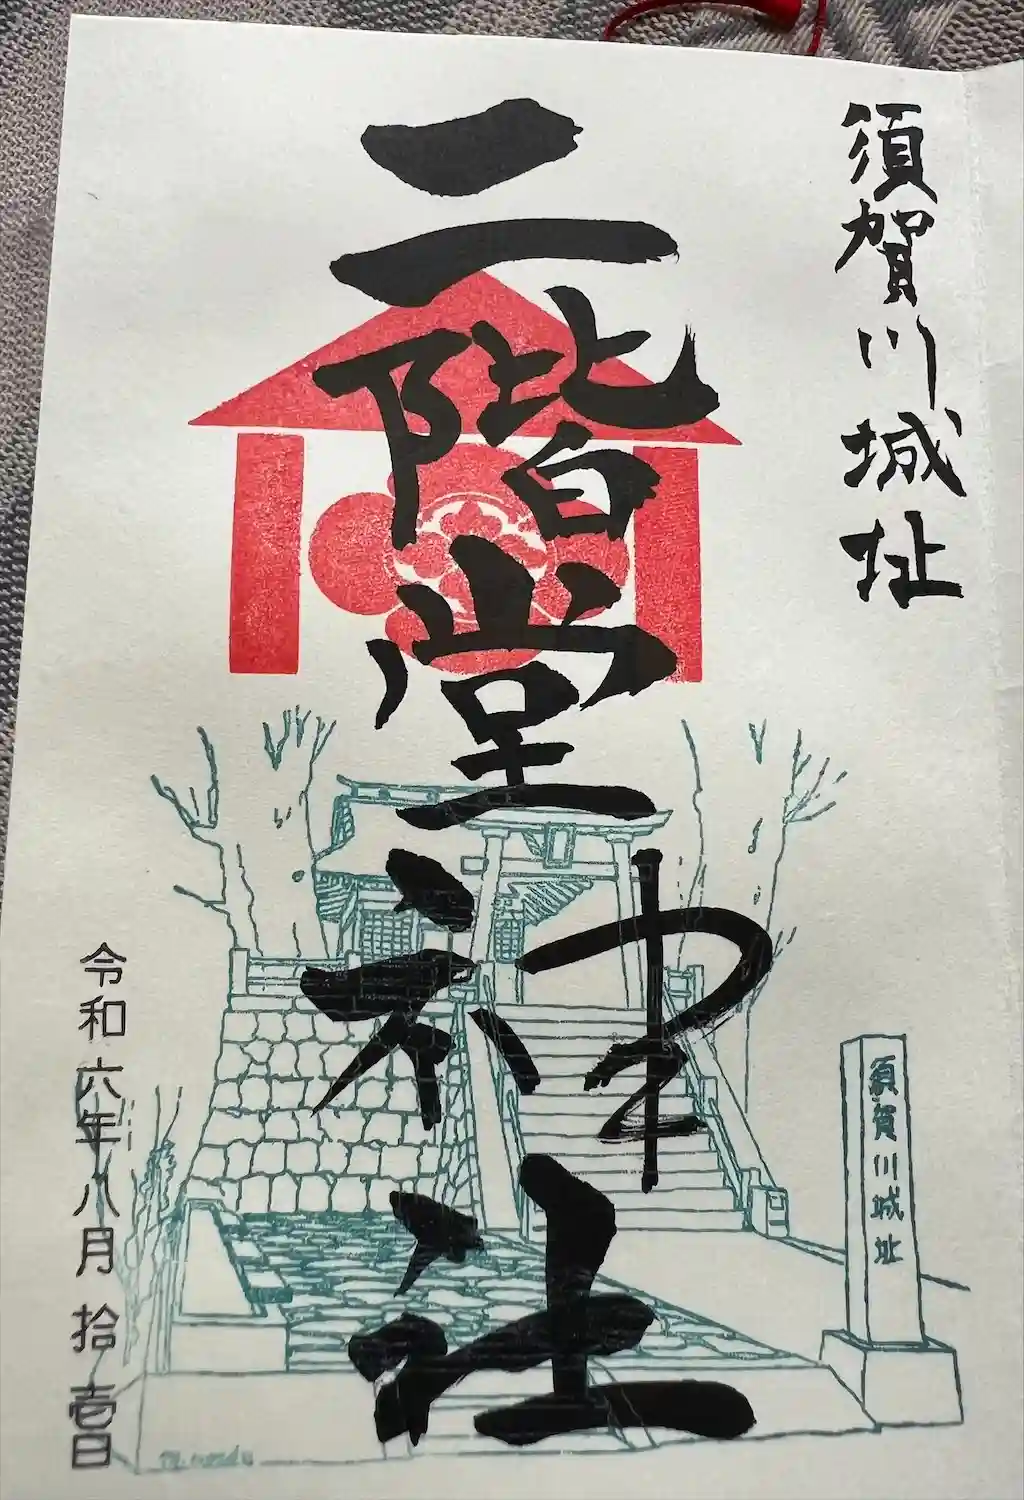 須賀川城址
二階堂神社
須賀川城址
令和六年八月拾壱日